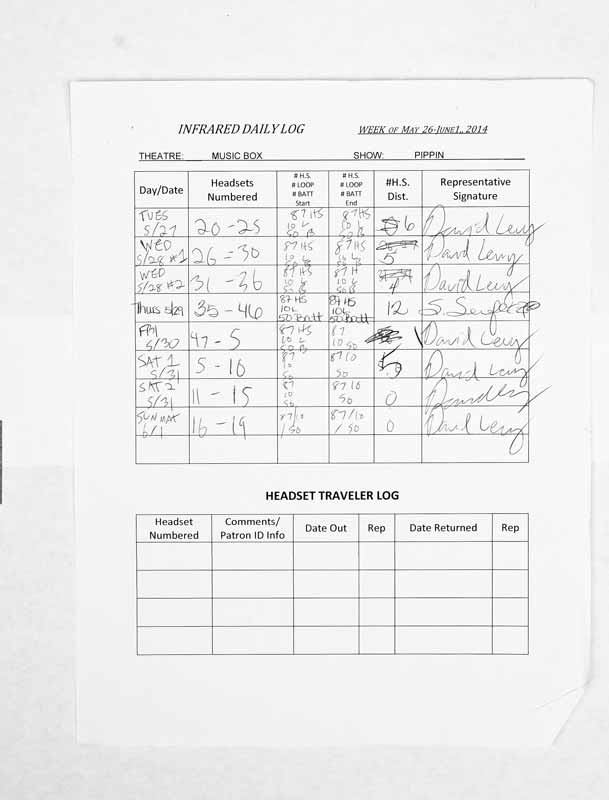 INFRARED DAILY LOG WEEK OF MAY 26-JUNE1, 2014
THEATRE: MUSIC BOX SHOW: PIPPIN
Day/Date Headsets Numbered # H.S. # LOOP # BATT Start # H.S. # LOOP # BATT End #H.S. Dist. Representative Signature
TUES 5/27 20-25 87 HS 10 L 50 B 87 HS 10 L 50 B 6 David Levy
WED 5/28 #1 26-30 87 HS 10 L 50 B 87 HS 10 L 50 B 5 David Levy
WED 5/28 #2 31-36 87 HS 10 L 50 B 87 H 10 L 50 B 4 David Levy
Thurs 5/29 35-46 87 HS 10L 50 Batt 87 HS 10L 50 Batt 12 S.
FRI 5/30 47-5 87 HS 10 L 50 B 87 10 50 David Levy
SAT 1 5/31 5-10 87 10 50 87/10 50 5 David Levy
SAT 2 5/31 11-15 87 10 50 87 10 50 0
SUN MAT 6/1 16-19 87/10 / 50 87/10 / 50 0 David Levy
HEADSET TRAVELER LOG
Headset Numbered Comments/ Patron ID Info Date Out Rep Date Returned Rep